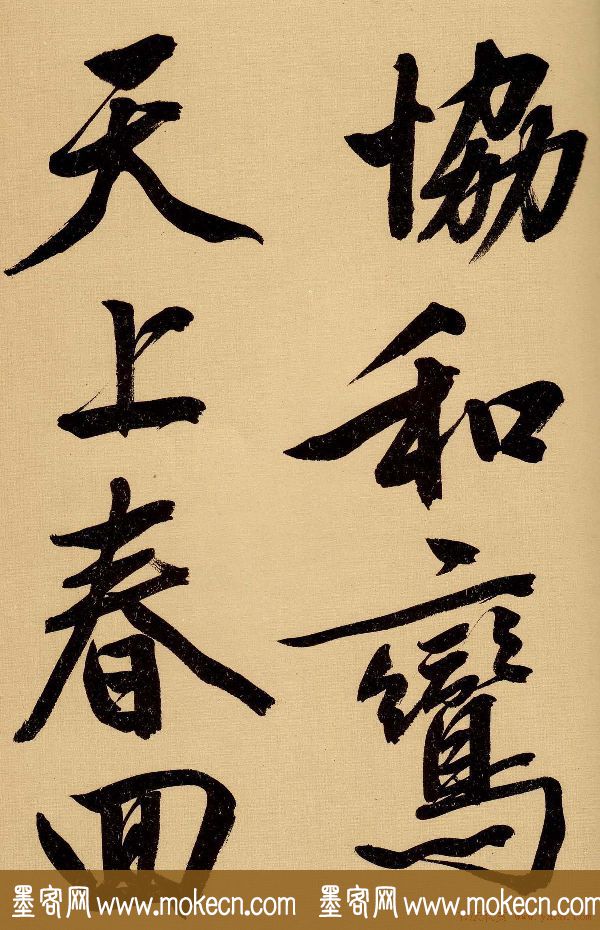 協和鸞
天上春回
墨客网 www.mokecn.com 墨客网 www.mokecn.com